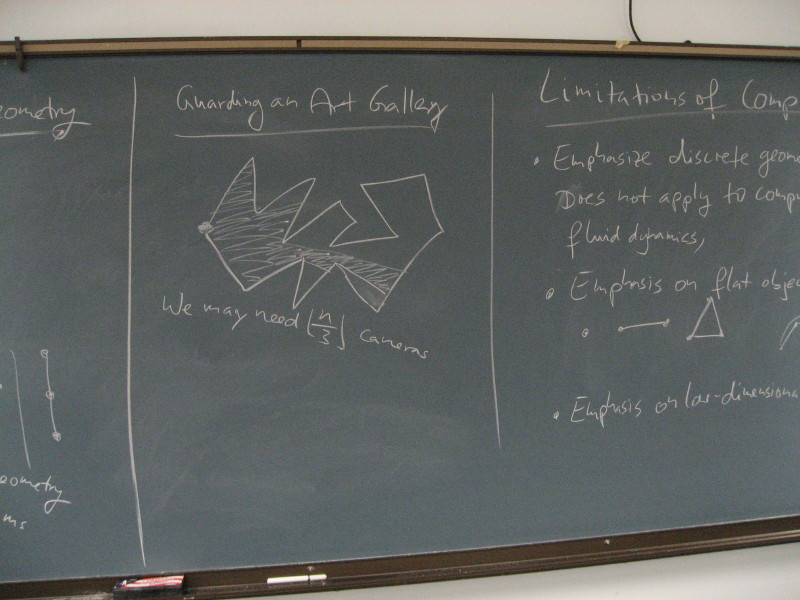 eometry
eometry
ms
Guarding an Art Gallery
We may need ⌊n/3⌋ cameras
Limitations of Comp
• Emphasize discrete geom
Does not apply to compu
fluid dynamics,
• Emphasis on flat objec
• Emphasis on low-dimensional